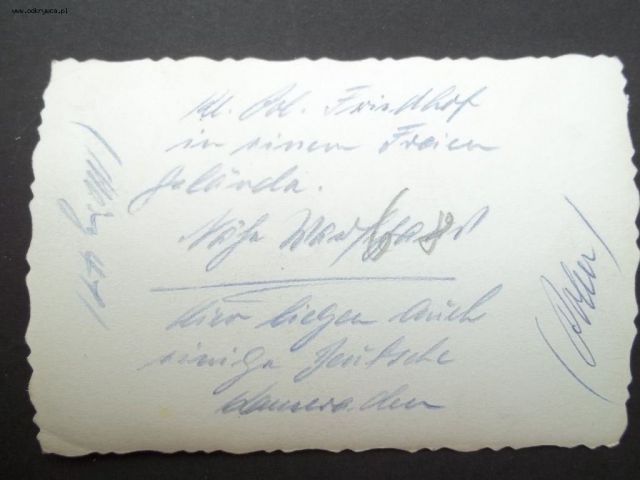 www.odkrywca.pl
Kl. Pol. Friedhof
in einem Freien
Gelände.
Nähe
68
Hier liegen auch
einige Deutsche
Kameraden
(Polen)